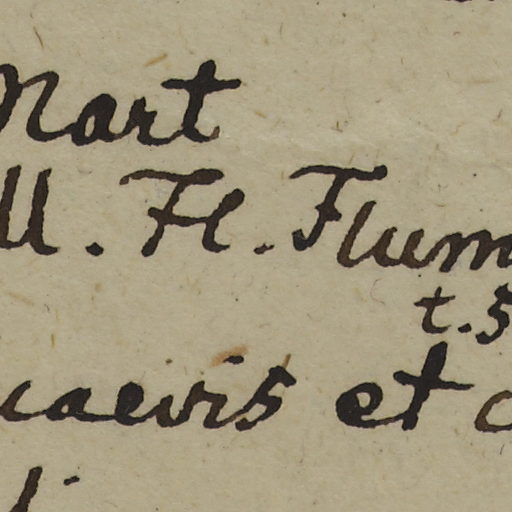 Mart
ll. Fl. Flum
t. 5
caevis et